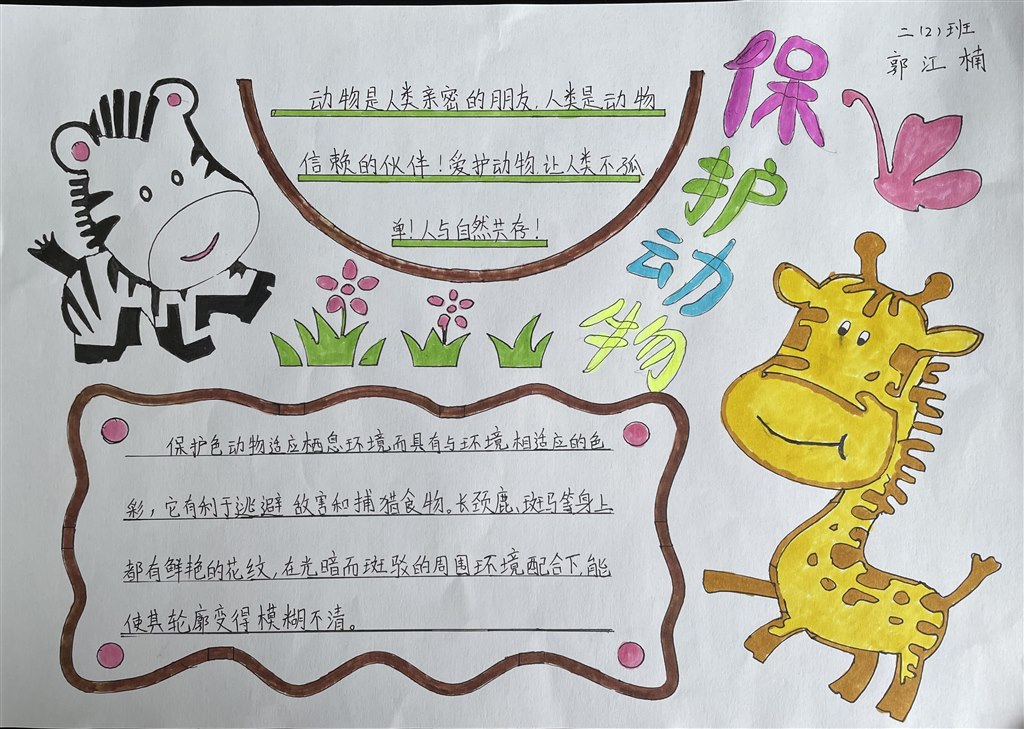 二(2)班
郭江楠
保护动物
动物是人类亲密的朋友,人类是动物
信赖的伙伴!爱护动物,让人类不孤
单!人与自然共存!
保护色动物适应栖息环境而具有与环境相适应的色
彩,它有利于逃避敌害和捕猎食物。长颈鹿、斑马等身上
都有鲜艳的花纹,在光暗而斑驳的周围环境配合下,能
使其轮廓变得模糊不清。